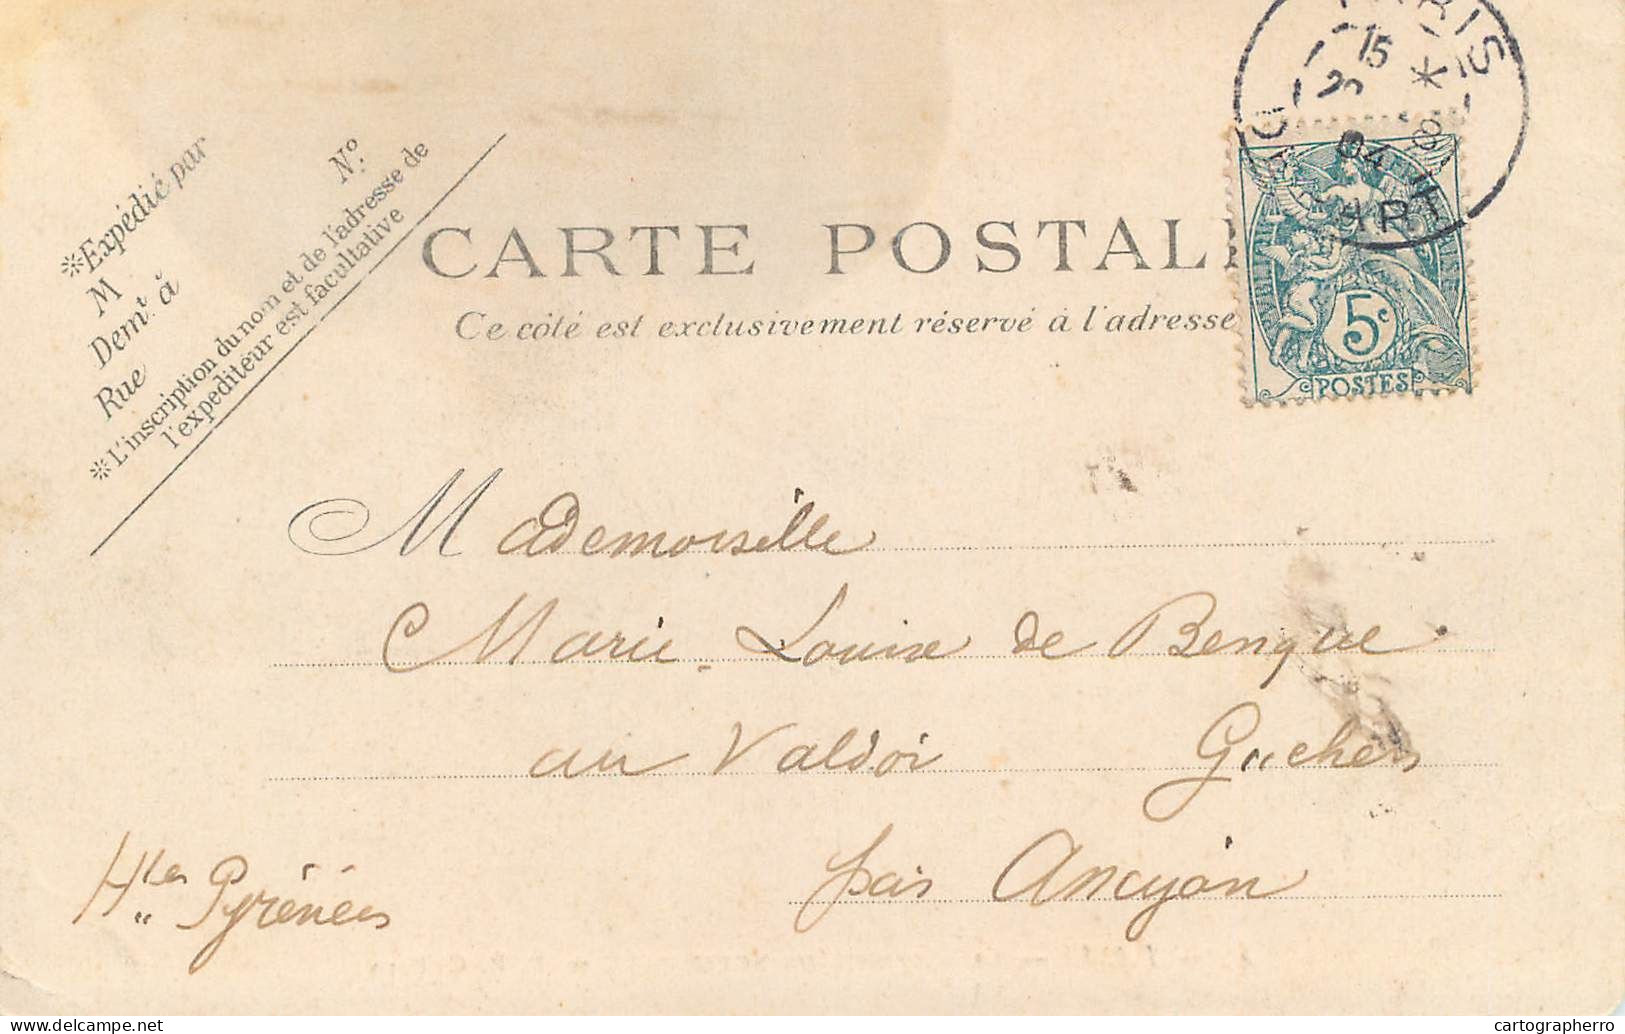 Expédié par
M
N°
Demt à
Rue
L'inscription du nom et de l'adresse de
l'expéditeur est facultative
CARTE POSTAL
Ce côté est exclusivement réservé à l'adresse
15
04
5c
POSTES
Mademoiselle
Marie-Louise de Bengue
au Valdor Guchen
par Ancizan
Htes Pyrénées
delcampe.net
cartographerro